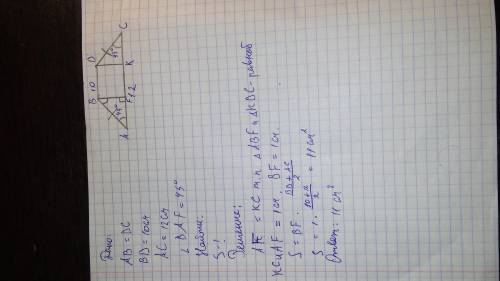 Дано:
AB = DC
BD = 10см
AC = 12см
∠BAF = 45°
Найти:
S - ?
Решение:
AF = KC т.к. △ABF и △KDC - равноб
KC и AF = 1см. BF = 1см.
S = BF · (BD + AC)/2
S = 1 · (10 + 12)/2 = 11 см²
Ответ: 11 см²
B 10 D
45° 45°
A F 12 K C